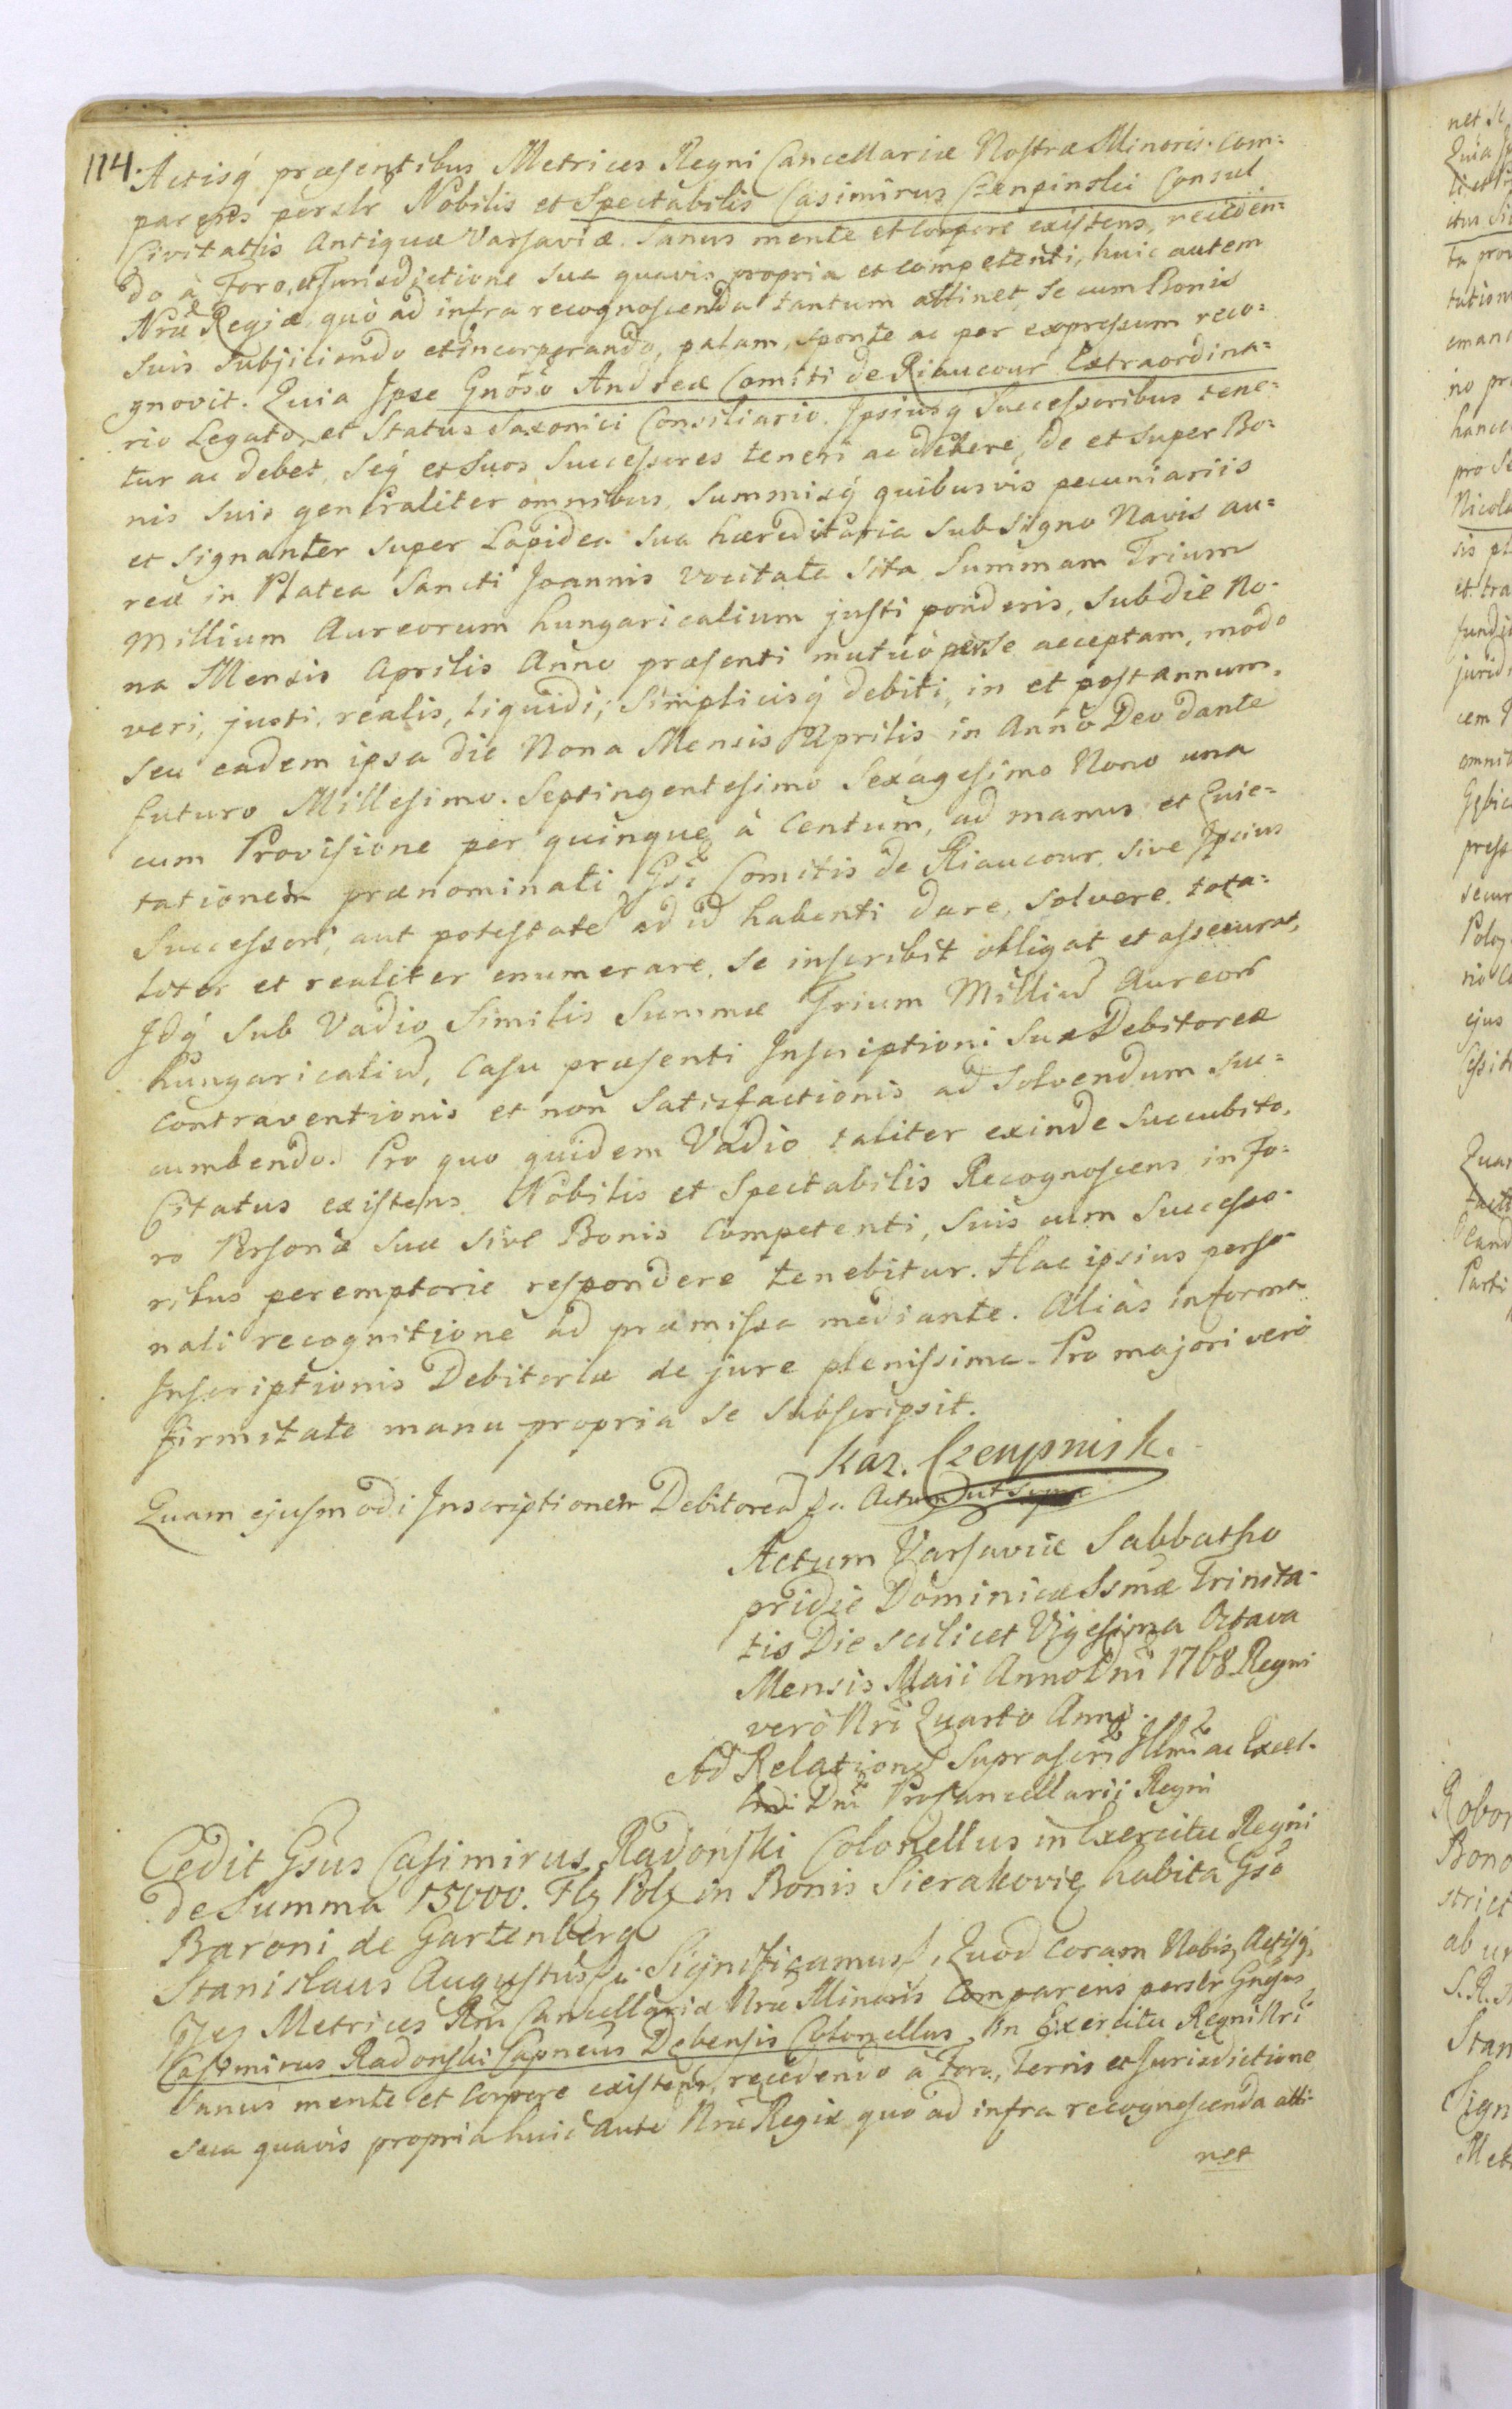 114.
Actisq́ præsentibus Metrices Regni Cancellariæ Nostræ Minoris. Com=
parens persłr Nobilis et Spectabilis Casimirus Czenpinski Consul
Civitatis Antiquæ Varsaviæ. Sanus mente et Corpore existens, receden=
do à Foro, et Jurisdictione Sua quavis propria et competenti, huic autem
Nræ Regiæ, quò ad infra recognoscenda tantum attinet, se cum Bonis
Suis Subjiciendo et incorporando, palam, sponte ac per expressum reco=
gnovit. Quia Ipse Gnoso Andreæ Comiti de Riaucour Extraordina=
rio Legato, et Status Saxonici Consiliario. Ipsiusq́ Successoribus tene=
tur ac debet, Seq́ et Suos Successores teneri ac debere, de et Super Bo=
nis Suis generaliter omnibus, Summisq́ quibusvis pecuniariis
et signanter super Lapidea Sua hæreditaria Sub Signo Navis au=
reæ in Platea Sancti Joannis vocitata Sita Summam Trium
Millium Aureorum hungaricalium justi ponderis, Sub die No-
na Mensis Aprilis Anno præsenti mutuò per Se acceptam, modo
veri, justi, realis, liquidi, Simplicisq́ debiti, in et post annum,
Seu eadem ipsa die Nona Mensis Aprilis in Anno Deo dante
futuro Millesimo. Septingentesimo Sexagesimo Nono una
cum Provisione per quinque à Centum, ad manus et Quie=
tationem prænominati Gsi Comitis de Riaucour, Sive Ipsius
Successori, aut potestatē ad id habenti dare, solvere, tota=
liter et realiter enumerare. Se inscribit obligat et assecurat,
Idq́ Sub Vadio Similis Summæ Trium Milliū Aureorū
hungaricaliū, Casu præsenti Inscriptioni Suæ Debitoreæ
contraventionis et non Satisfactionis ad Solvendum Suc=
cumbendo. Pro quo quidem Vadio taliter exinde Succubito.
Citatus existens Nobilis et Spectabilis Recognoscens in Fo=
ro Personæ Suæ Sive Bonis Competenti, Suis cum Successo-
ribus peremptorie respondere tenebitur. Hac ipsius perso-
nali recognitione ad præmissa mediante. Aliàs in forma
Inscriptionis Debitoriæ de jure plenissima. Pro majori verò
firmitate manu propria se Subscripsit.
Kaz. Czenpinsk.
Quam ejusmodi Inscriptionem Debitoreā &c. Actum ut Supra
Actum Varsaviæ Sabbatho
pridie Dominicæ Ssmæ Trinita-
tis Die scilicet Vigesima Octava
Mensis Maii Anno Dni 1768 Regni
verò Nri Quarto Anno.
Ad Relationē Suprascri Illmi ac Excel-
Dni Procancellarii Regni
Cedit Gsus Casimirus Radonski Colonellus in Exercitu Regni
de Summa 15000. Flz Polz in Bonis Sierakovie habita Gso
Baroni de Gartenberg
Stanislaus Augustus &c. Significamus &, Quod Coram Nobis, Actisq́,
Metrices Rni Cancellariæ Nræ Minoris Comparens persłr Gnosus
Casimirus Radonski Capneus Debensis Colonellus in Exercitu Regni Nri
Sanus mente et Corpore existens, recedendo à Foro, Terris et Jurisdictione
sua quavis propria huic autē Nræ Regiæ quo ad infra recognoscenda atti-
net